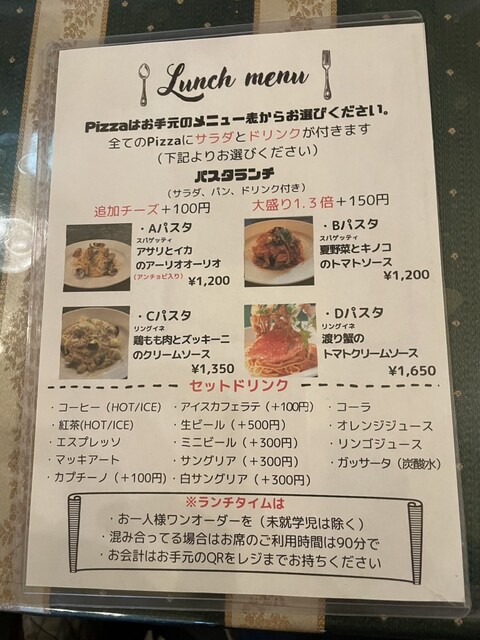 Lunch menu
Pizzaはお手元のメニュー表からお選びください。
全てのPizzaにサラダとドリンクが付きます
（下記よりお選びください）
パスタランチ
（サラダ、パン、ドリンク付き）
追加チーズ＋100円
大盛り1.3倍＋150円
・Aパスタ
スパゲッティ
アサリとイカ
のアーリオオーリオ
（アンチョビ入り）
¥1,200
・Bパスタ
スパゲッティ
夏野菜とキノコ
のトマトソース
¥1,200
・Cパスタ
リングイネ
鶏もも肉とズッキーニ
のクリームソース
¥1,350
・Dパスタ
リングイネ
渡り蟹の
トマトクリームソース
¥1,650
セットドリンク
・コーヒー（HOT/ICE）
・紅茶(HOT/ICE)
・エスプレッソ
・マッキアート
・カプチーノ（＋100円）
・アイスカフェラテ（＋100円）
・生ビール（＋500円）
・ミニビール（＋300円）
・サングリア（＋300円）
・白サングリア（＋300円）
・コーラ
・オレンジジュース
・リンゴジュース
・ガッサータ（炭酸水）
※ランチタイムは
・お一人様ワンオーダーを（未就学児は除く）
・混み合ってる場合はお席のご利用時間は90分で
・お会計はお手元のQRをレジまでお持ちください